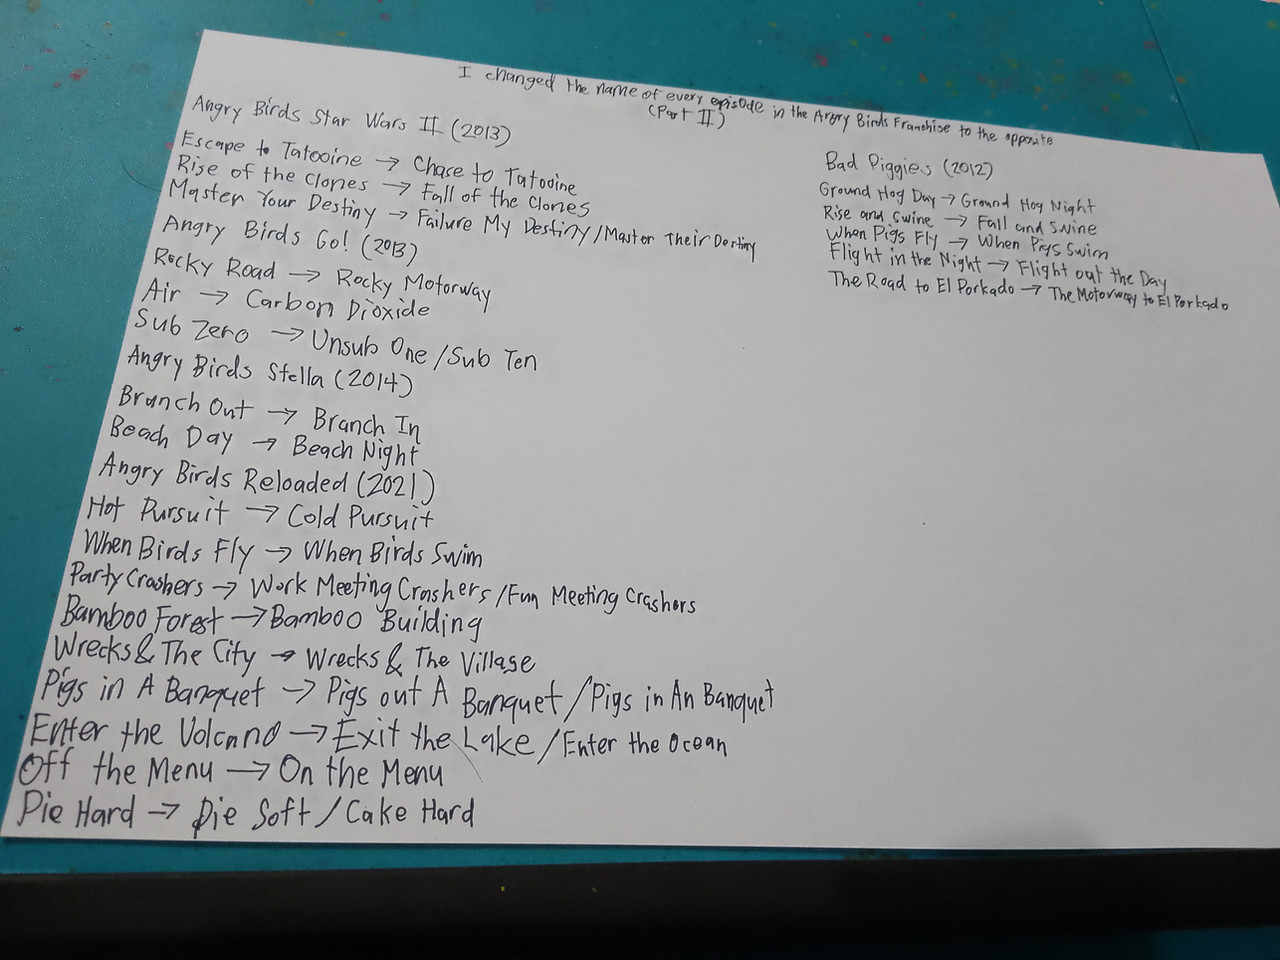 I changed the name of every episode in the Angry Birds Franchise to the opposite
(Part II)
Angry Birds Star Wars II (2013)
Escape to Tatooine → Chase to Tatooine
Rise of the Clones → Fall of the Clones
Master Your Destiny → Failure My Destiny/Master Their Destiny
Angry Birds Go! (2013)
Rocky Road → Rocky Motorway
Air → Carbon Dioxide
Sub Zero → Unsub One/Sub Ten
Angry Birds Stella (2014)
Branch Out → Branch In
Beach Day → Beach Night
Angry Birds Reloaded (2021)
Hot Pursuit → Cold Pursuit
When Birds Fly → When Birds Swim
Party Crashers → Work Meeting Crashers/Fun Meeting Crashers
Bamboo Forest → Bamboo Building
Wrecks & The City → Wrecks & The Village
Pigs in A Banquet → Pigs out A Banquet/Pigs in An Banquet
Enter the Volcano → Exit the Lake/Enter the Ocean
Off the Menu → On the Menu
Pie Hard → Pie Soft/Cake Hard
Bad Piggies (2012)
Ground Hog Day → Ground Hog Night
Rise and Swine → Fall and Swine
When Pigs Fly → When Pigs Swim
Flight in the Night → Flight out the Day
The Road to El Porkado → The Motorway to El Porkado